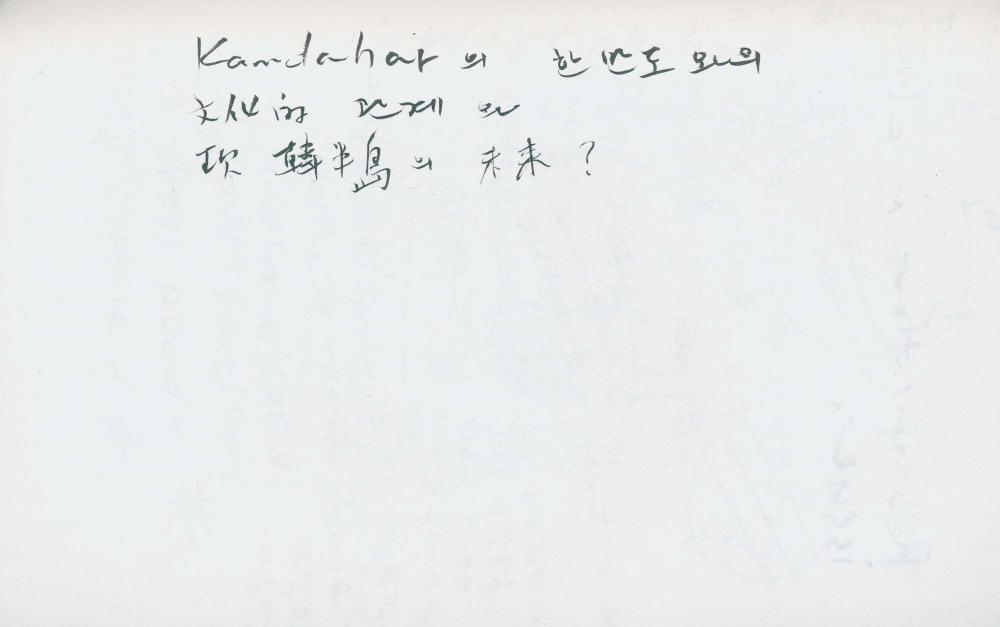 Kandahar의 한반도와의
文化的 관계와
現 韓半島의 未來?